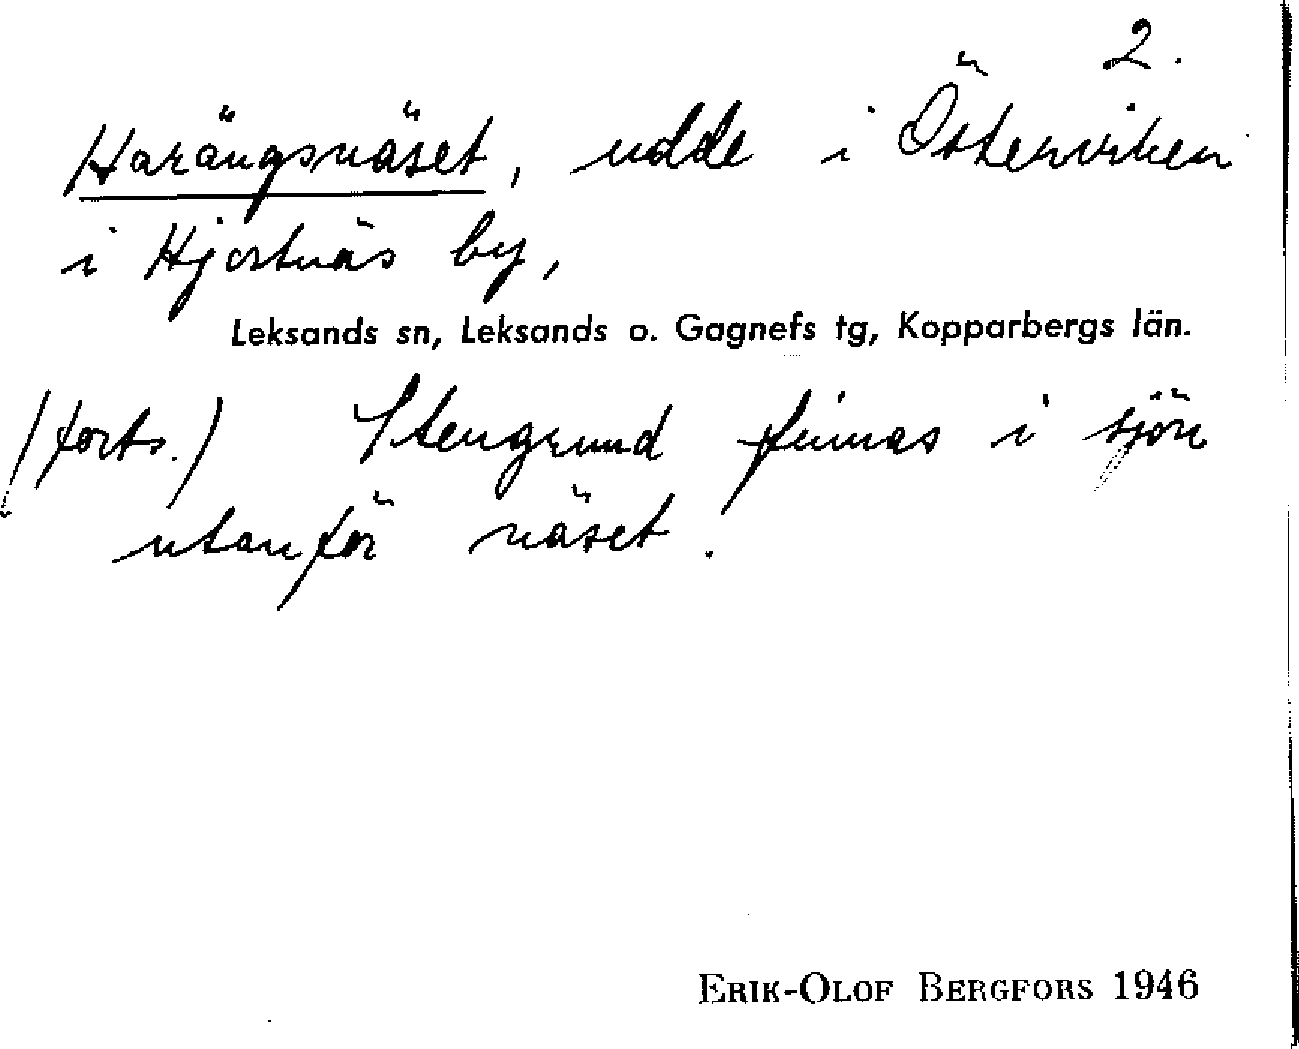 2.
Harängsnäset, udde i Österviken
i Hjortnäs by,
Leksands sn, Leksands o. Gagnefs tg, Kopparbergs län.
(forts.) Stengrund finnas i sjön
utanför näset.
ERIK-OLOF BERGFORS 1946